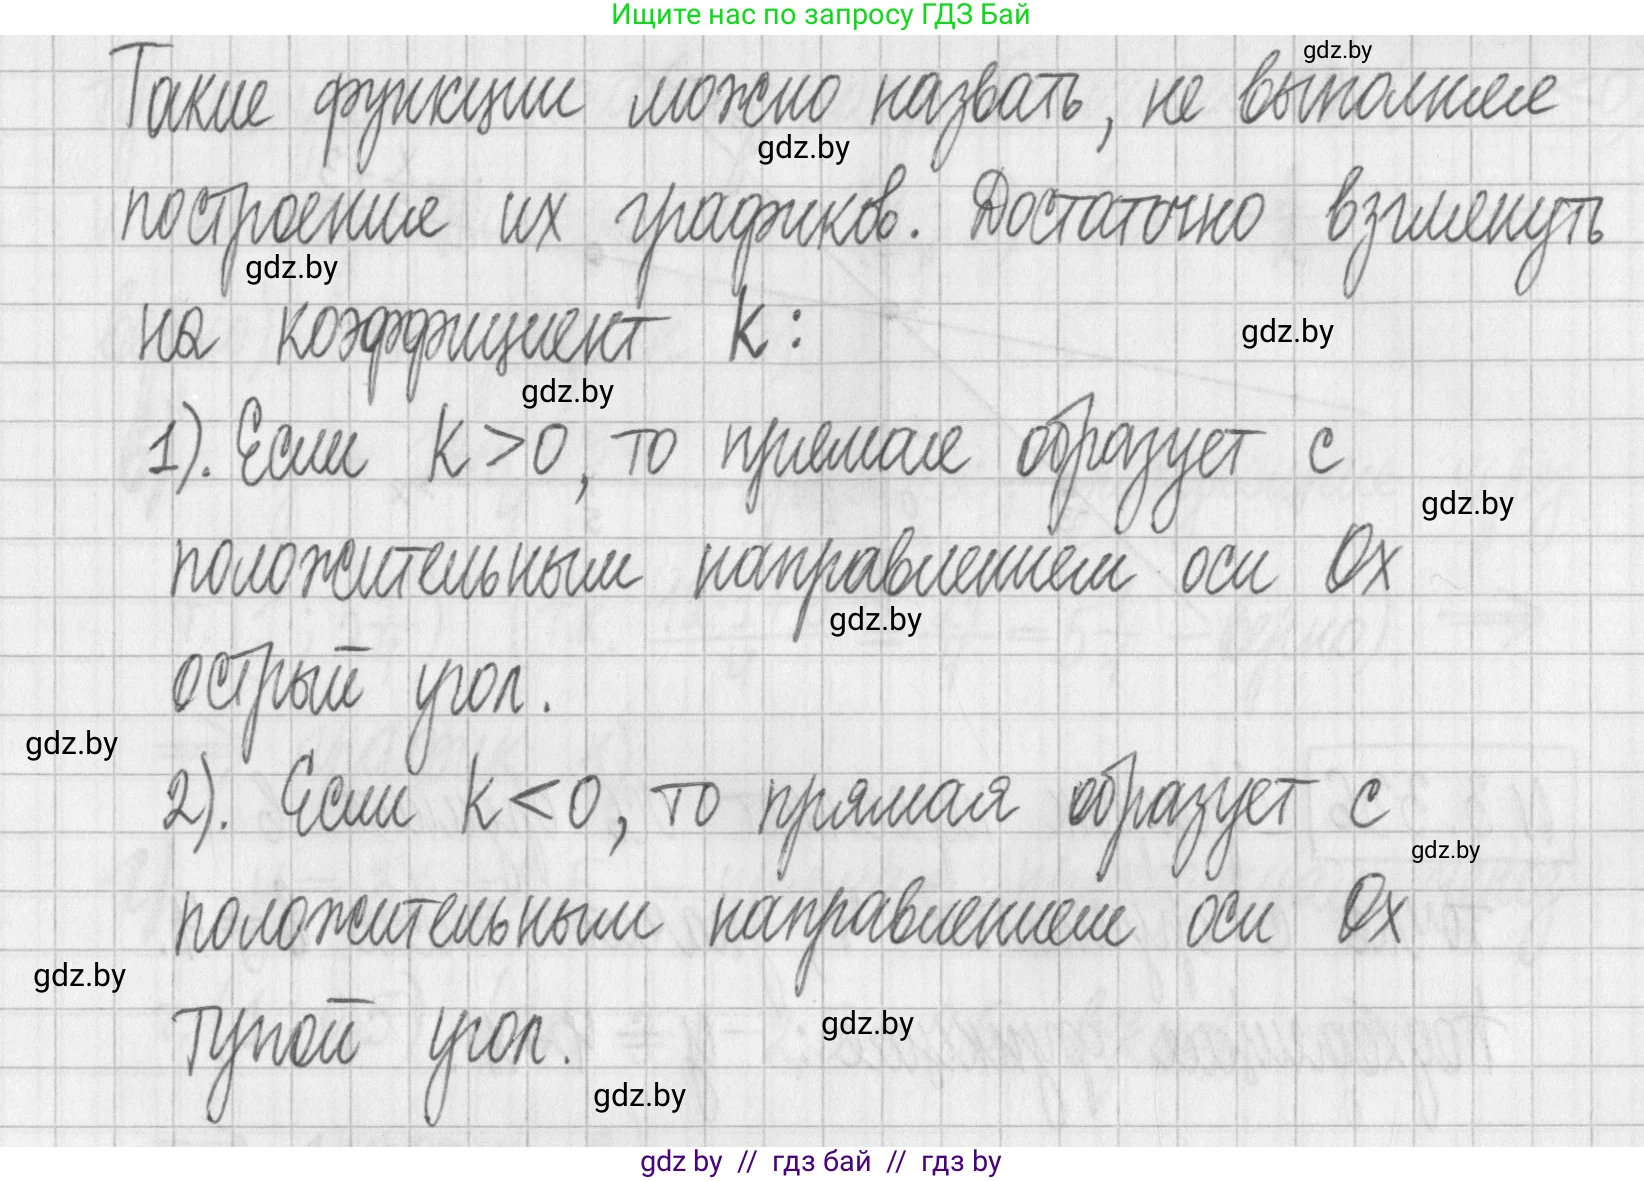 Ищите нас по запросу ГДЗ Бай
gdz.by
Такие функции можно назвать, не выполняя
gdz.by
построения их графиков. Достаточно взглянуть
gdz.by
на коэффициент k:
gdz.by
gdz.by
1). Если k>0, то прямая образует с
gdz.by
положительным направлением оси Ox
gdz.by
острый угол.
gdz.by
2). Если k<0, то прямая образует с
gdz.by
положительным направлением оси Ox
gdz.by
тупой угол.
gdz.by
gdz.by
gdz by // гдз бай // гдз by